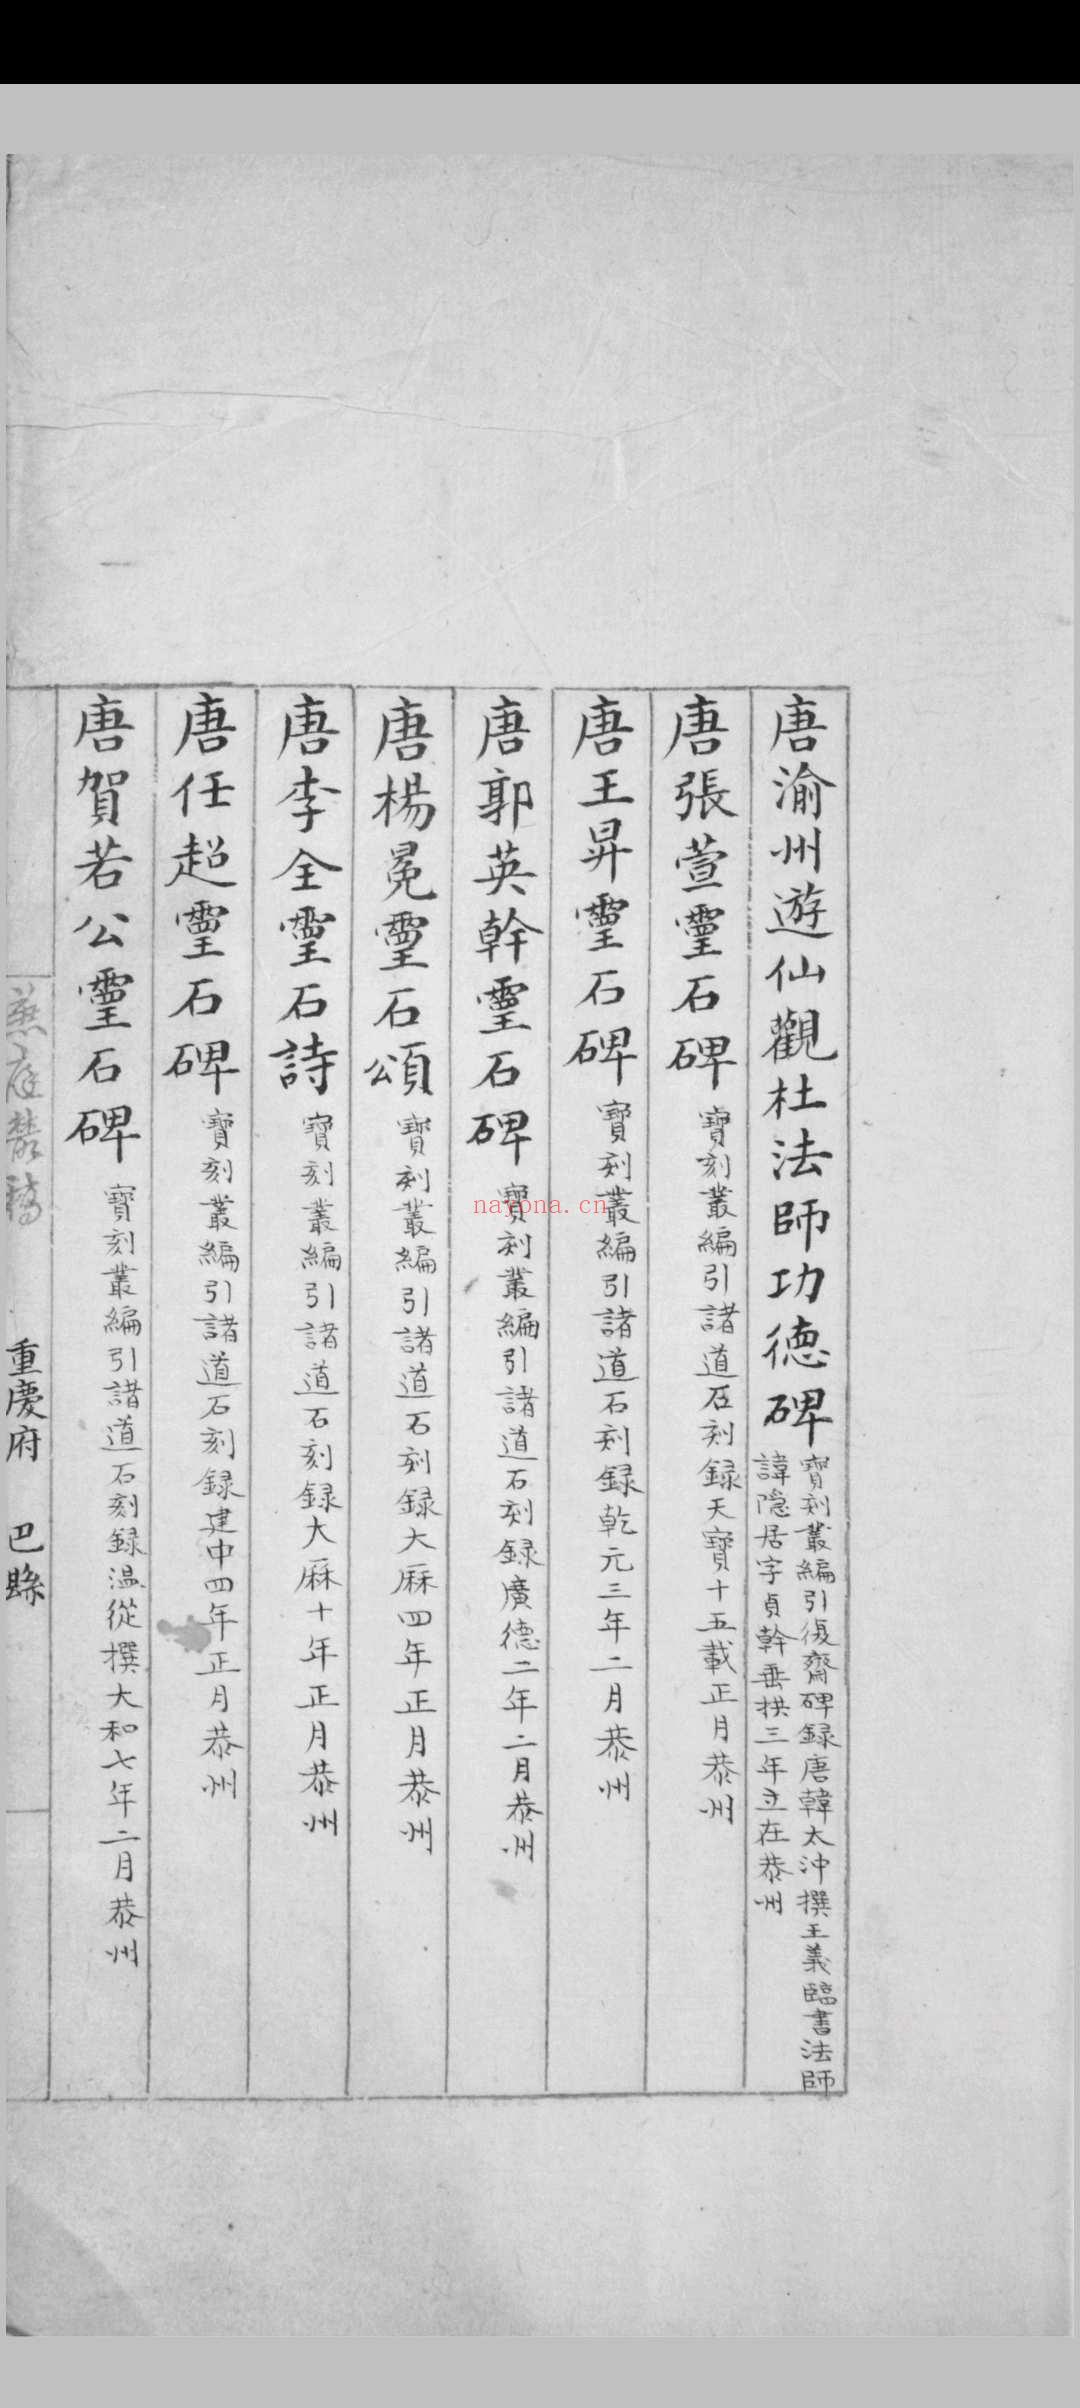 唐渝州遊仙觀杜法師功德碑
寶刻叢編引復齋碑録唐韓太沖撰王義臨書法師
諱隐居字貞幹垂拱三年立在恭州
唐張萱靈石碑 寶刻叢編引諸道石刻録天寶十五載正月恭州
唐王昇靈石碑 寶刻叢編引諸道石刻録乾元三年二月恭州
唐郭英幹靈石碑 寶刻叢編引諸道石刻録廣德二年二月恭州
唐楊冕靈石頌 寶刻叢編引諸道石刻録大厤四年正月恭州
唐李全靈石詩 寶刻叢編引諸道石刻録大厤十年正月恭州
唐任超靈石碑 寶刻叢編引諸道石刻録建中四年正月恭州
唐賀若公靈石碑 寶刻叢編引諸道石刻録温從撰大和七年二月恭州
重慶府 巴縣
nayona.cn